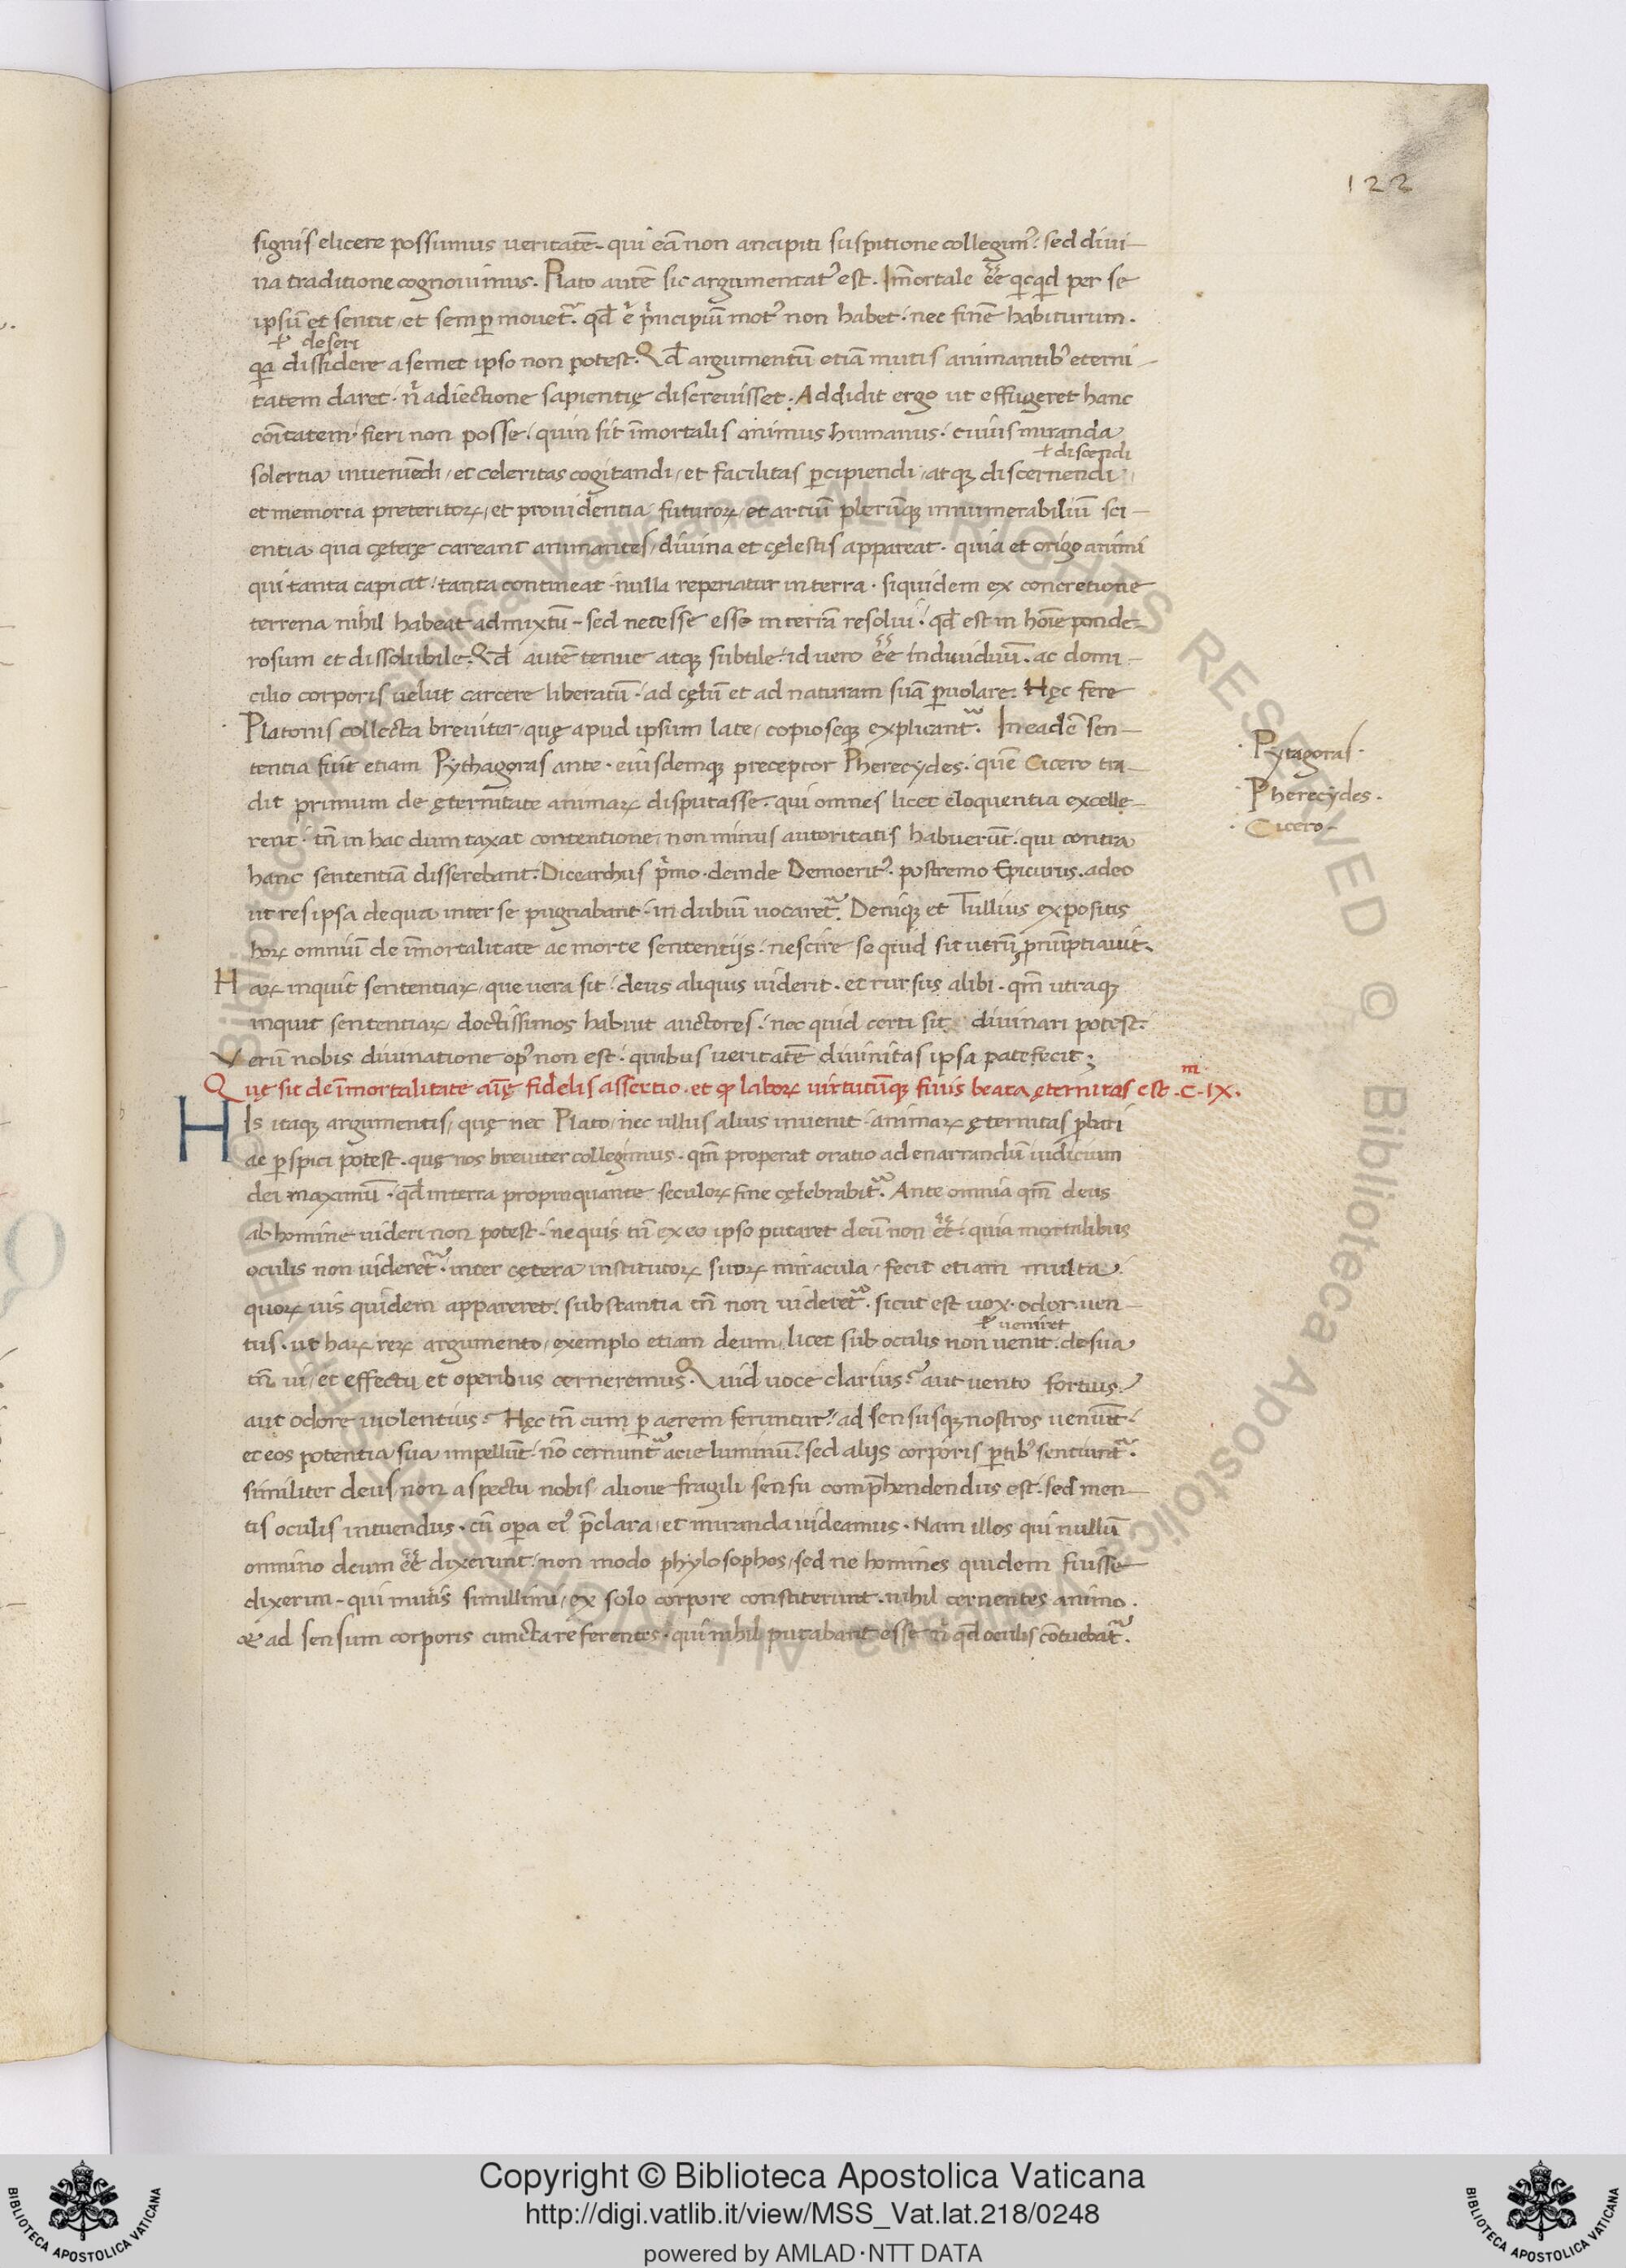 122
signis elicere possumus veritatē. qui eā non ancipiti suspitione collegim᷒. sed divi-
na traditione cognovimus. Plato autē sic argumentat᷒ est. Īmortale ēē qͥcqͥd per se
ipsū et sentit, et semꝑ movet᷑. qđ .n. pͥncipiū mot᷒ non habet. nec finē habiturum.
ł deseri
qͥa dissidere a semet ipso non potest. Qđ argumentū etiā mutis animantib᷒ eterni-
tatem daret. nͥ adiectione sapientię discrevisset. Addidit ergo ut effugeret hanc
cōītatem. fieri non posse, quin sit īmortalis animus humanus. cuius miranda
ł discendi
solertia inveniēdi, et celeritas cogitandi, et facilitas ꝑcipiendi, atqꝫ discernendi
et memoria preteritoꝝ, et providentia futuroꝝ, et artiū plerūqꝫ innumerabiliū sci-
entia qua cęterę careant animantes, divina et cęlestis appareat. quia et origo animi
qui tanta capiat, tanta contineat, nulla reperiatur in terra. siquidem ex concretione
terrena nihil habeat admixtū. sed necesse esse in terrā resolvi. qđ est in hoīe ponde-
rosum et dissolubile. Qđ autē tenue atqꝫ subtile, id vero ēē individuū. ac domi-
cilio corporis velut carcere liberatū. ad cęlū et ad naturam suā ꝑvolare. Hęc fere
Platonis collecta breviter, quę apud ipsum late, copioseqꝫ explicant᷑. In eadē sen-
tentia fuit etiam Pythagoras ante. eiusdemqꝫ preceptor Pherecydes. quē Cicero tra-
dit primum de ęternitate animaꝝ disputasse. qui omnes licet eloquentia excelle-
rent. tn̄ in hac dum taxat contentione, non minus autoritatis habuerūt. qui contra
hanc sententiā disserebant. Dicearchus pͥmo. deinde Democrit᷒. postremo Epicurus. adeo
ut res ipsa de qua inter se pugnabant, in dubiū vocaret᷑. Deniqꝫ et Tullius expositis
hoꝝ omniū de īmortalitate ac morte sententijs, nescire se quid sit verū pronūptiavit.
Haꝝ inquit sententiaꝝ, que vera sit, deus aliquis viderit. et rursus alibi. qm̄ utraqꝫ
inquit sententiaꝝ, doctissimos habuit auctores, nec quid certi sit divinari potest.
Verū nobis divinatione op᷒ non est. quibus veritatē divinitas ipsa patefecit;
Quę sit de īmortalitate aīę fidelis assertio. et ꝙ laboꝝ virtutūqꝫ finis beata ęternitas est. C.ᵐ IX.
His itaqꝫ argumentis, quę nec Plato, nec ullus alius invenit. animaꝝ ęternitas ꝓbari
ac ꝑspici potest. quę nos breviter collegimus. qm̄ properat oratio ad enarrandū iudicium
dei maximū. qđ in terra propinquante seculoꝝ fine cęlebrabit᷑. Ante omnia qm̄ deus
ab homine videri non potest. ne quis tn̄ ex eo ipso putaret deū non ēē. quia mortalibus
oculis non videret᷑. inter cętera institutoꝝ suoꝝ miracula, fecit etiam multa
quoꝝ vis quidem appareret, substantia tn̄ non videret᷑. sicut est vox. odor. ven-
ł veniret
tus. ut haꝝ reꝝ argumento, exemplo etiam deum, licet sub oculis non venit. de sua
tn̄ vi, et effectu et operibus cerneremus. Quid voce clarius? aut vento fortius?
aut odore violentius? Hęc tn̄ cum ꝑ aerem feruntur, ad sensusqꝫ nostros veniūt.
et eos potentia sua impellūt. nō cernunt᷑ acie luminū. sed alijs corporis ꝑtib᷒ sentiunt᷑.
similiter deus, non aspectu nobis, aliove fragili sensu comp̄hendendus est. sed men-
tis oculis intuendus. cū oꝑa ei᷒ p̄clara, et miranda videamus. Nam illos qui nullū
omnino deum ēē dixerunt, non modo phylosophos, sed ne homines quidem fuisse
dixerim. qui mutis simillimi, ex solo corpore constiterunt. nihil cernentes animo.
et ad sensum corporis cuncta referentes. qui nihil putabant esse nͥ qđ oculis cōtuebāt᷑.
Pytagoras.
Pherecydes.
Cicero.
Copyright © Biblioteca Apostolica Vaticana
http://digi.vatlib.it/view/MSS_Vat.lat.218/0248
powered by AMLAD·NTT DATA
BIBLIOTECA APOSTOLICA VATICANA
BIBLIOTECA APOSTOLICA VATICANA